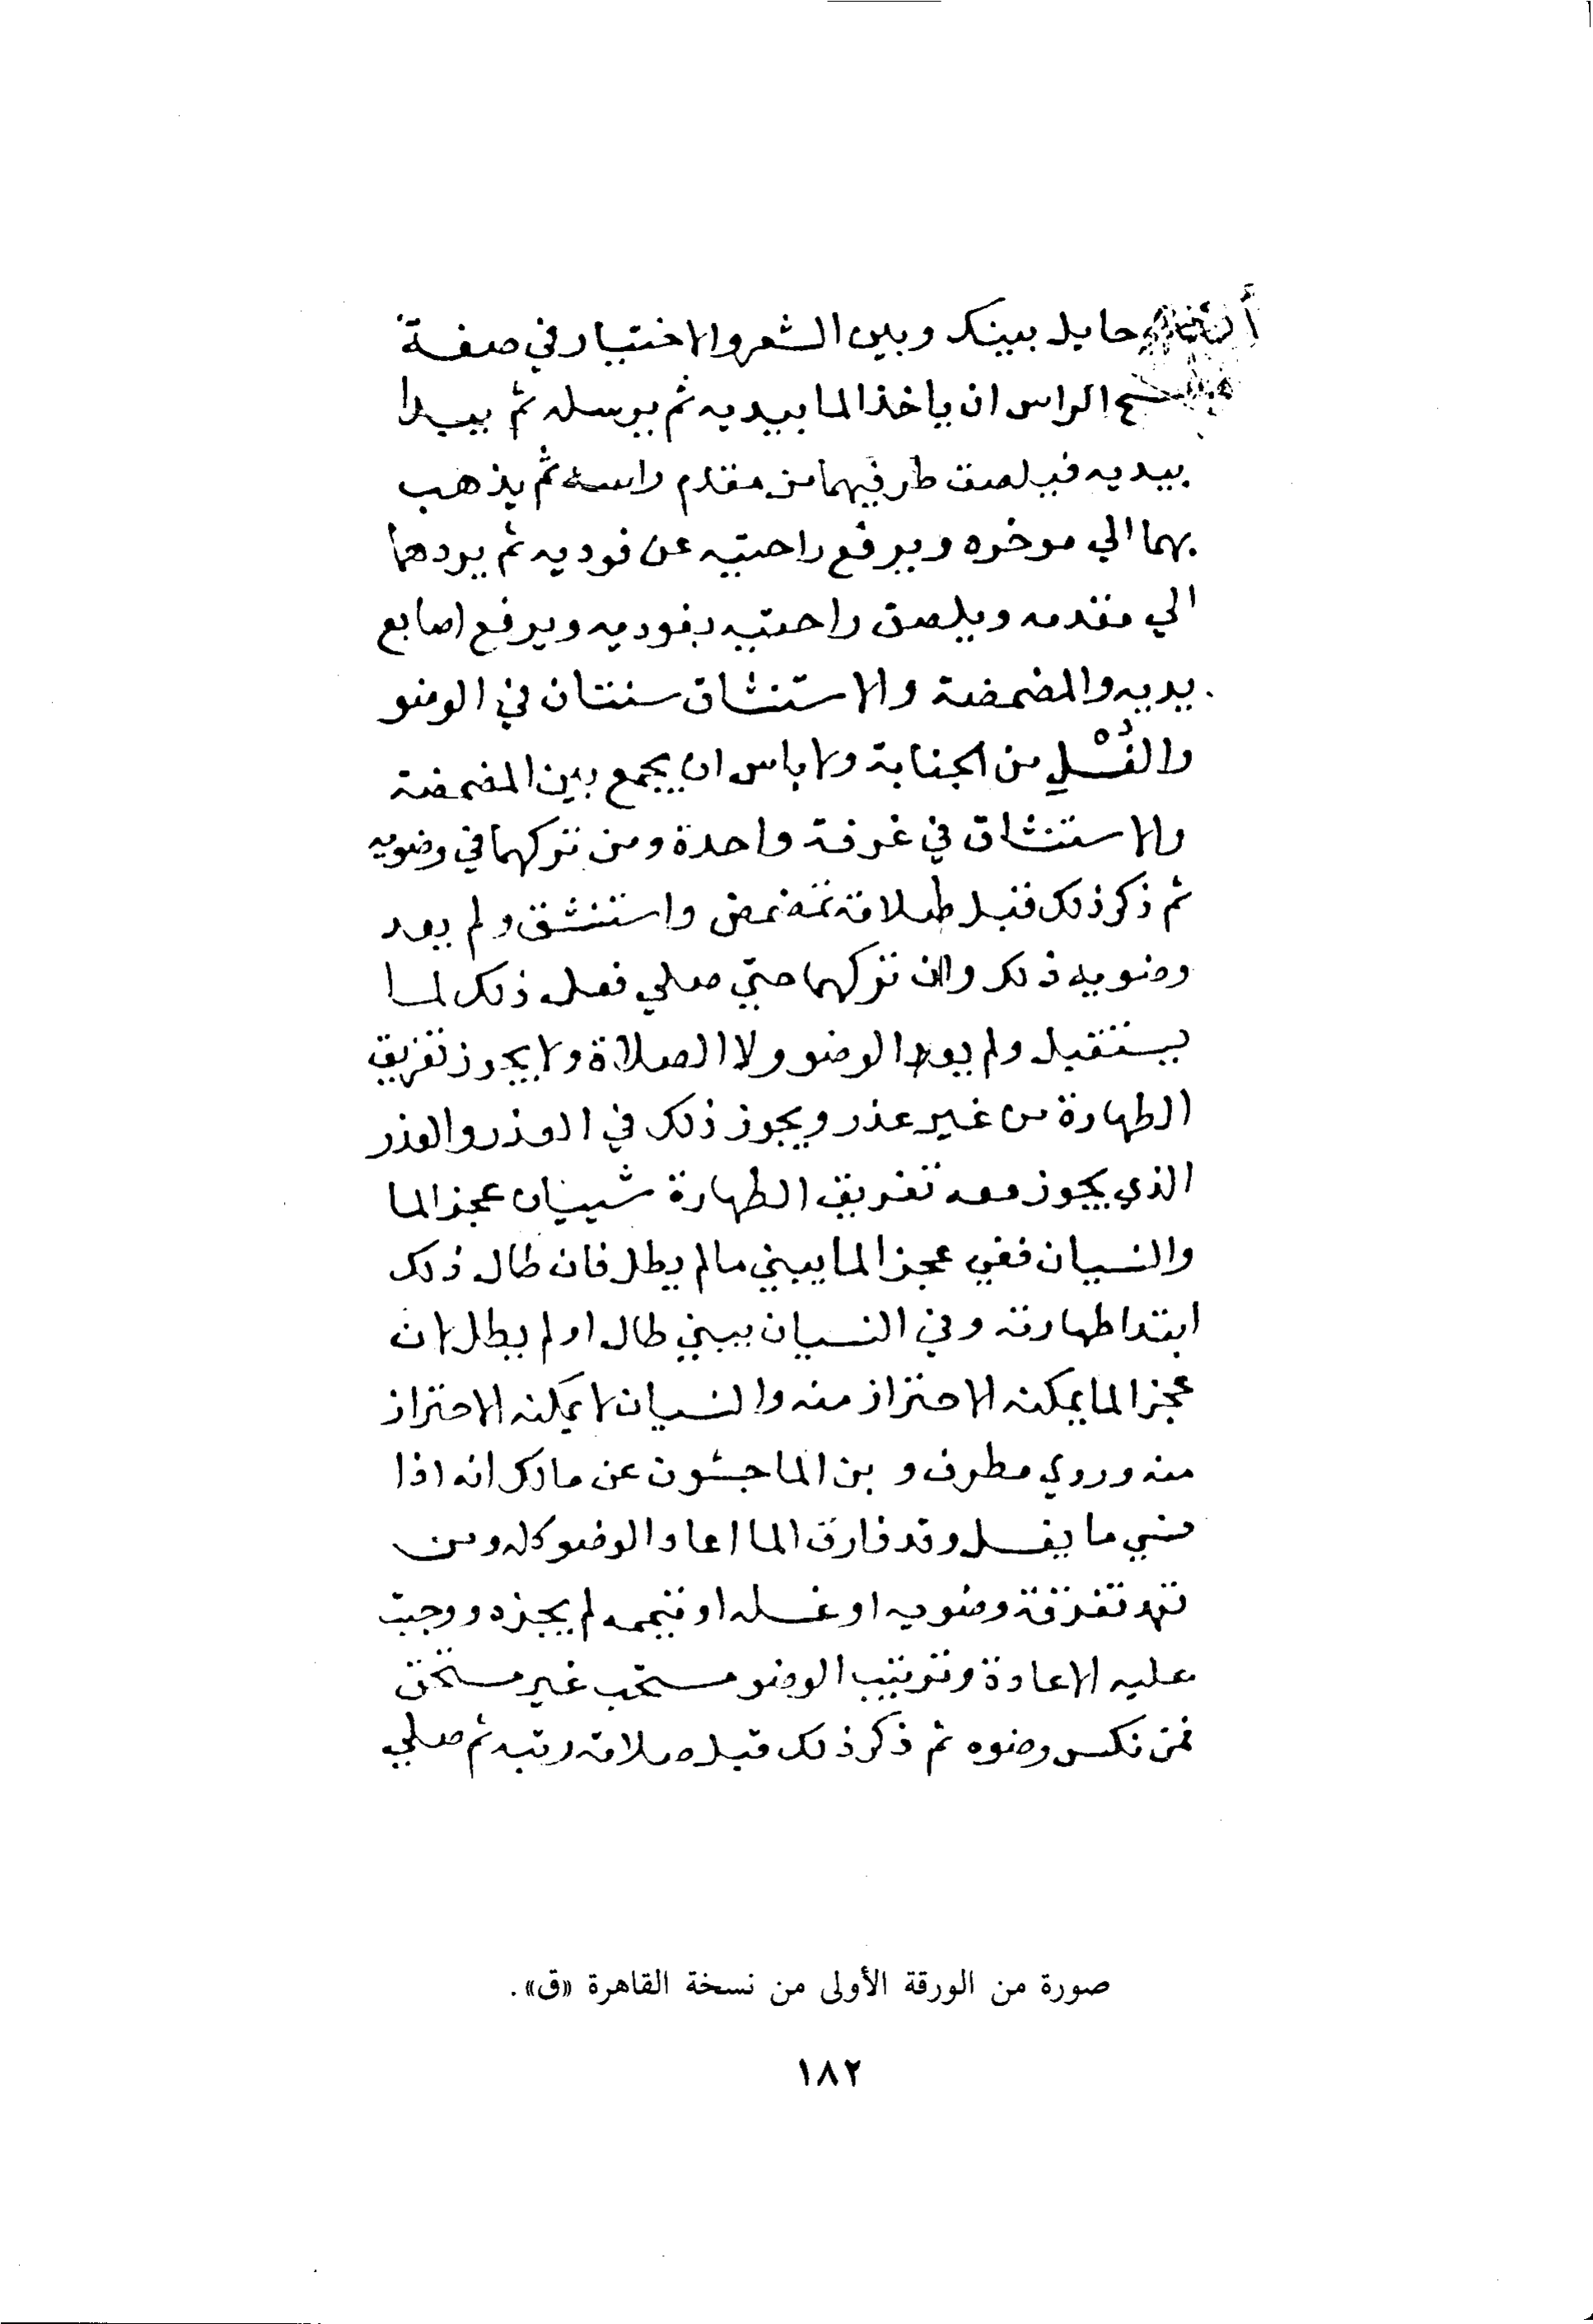 حايل بينك وبين الشعر والاختيار في صفة
مسح الراس ان ياخذ الما بيديه ثم يرسله ثم يبدا
بيديه فيلصق طرفيهما من مقدم راسه ثم يذهب
بهما الي موخره ويرفع راحتيه عن فوديه ثم يردهما
الي مقدمه ويلصق راحتيه بفوديه ويرفع اصابع
يديه والمضمضة والاستنشاق سنتان في الوضو
والغُسْلِ من الجنابة ولا باس ان يجمع بين المضمضة
والاستنشاق في غرفة واحدة ومن تركهما في وضويه
ثم ذكر ذلك قبل صلاته تمضمض واستنشق ولم يعد
وضويه ذلك وان تركهما حتي صلي فعل ذلك لما
يستقبل ولم يعد الوضو ولا الصلاة ولا يجوز تفريق
الطهارة من غير عذر ويجوز ذلك في العذر والعذر
الذي يجوز معه تفريق الطهارة شييان عجز الما
والنسيان ففي عجز الما يبني ما لم يطل فان طال ذلك
ابتدا طهارته وفي النسيان يبني طال او لم يطل لان
عجز الما يمكنه الاحتراز منه والنسيان لا يمكنه الاحتراز
منه وروي مطرف و بن الماجشون عن مالك انه اذا
نسي ما يغسل وقد فارق الما اعاد الوضو كله ومن
تعمد تفرقة وضويه او غسله او تيممه لم يجزه ووجبت
عليه الاعادة وترتيب الوضو مستحب غير مستحق
فمن نكس وضوه ثم ذكر ذلك قبل صلاته رتبه ثم صلي
صورة من الورقة الأولى من نسخة القاهرة «ق».
١٨٢